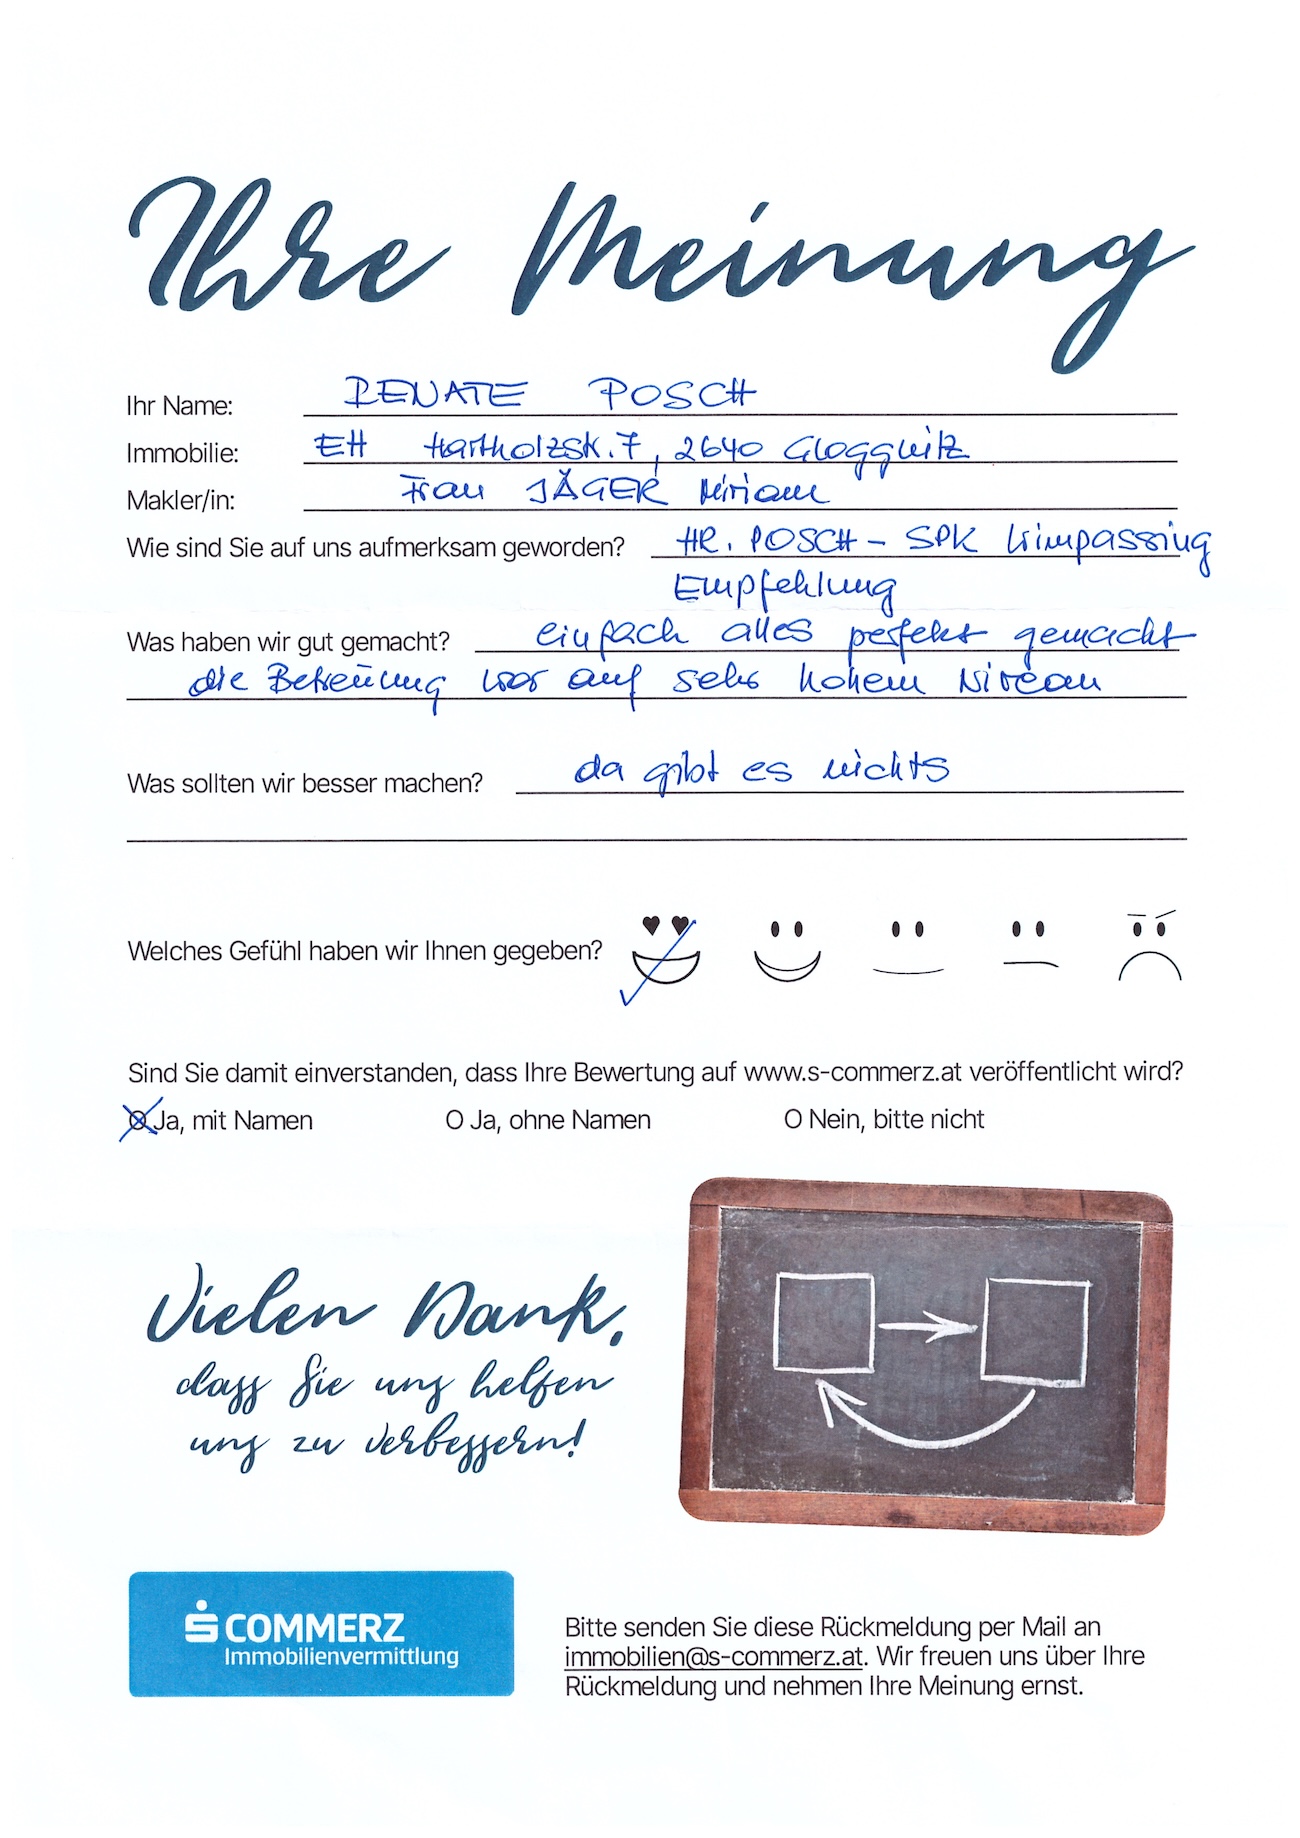 Ihre Meinung
Ihr Name: RENATE POSCH
Immobilie: EH Hartholzstr. 7, 2640 Gloggnitz
Makler/in: Frau JÄGER Miriam
Wie sind Sie auf uns aufmerksam geworden? HR. POSCH - SPK Wimpassing
Empfehlung
Was haben wir gut gemacht? einfach alles perfekt gemacht
die Betreuung war auf sehr hohem Niveau
Was sollten wir besser machen? da gibt es nichts
Welches Gefühl haben wir Ihnen gegeben?
Sind Sie damit einverstanden, dass Ihre Bewertung auf www.s-commerz.at veröffentlicht wird?
O Ja, mit Namen O Ja, ohne Namen O Nein, bitte nicht
Vielen Dank,
dass Sie uns helfen
uns zu verbessern!
S COMMERZ
Immobilienvermittlung
Bitte senden Sie diese Rückmeldung per Mail an
immobilien@s-commerz.at. Wir freuen uns über Ihre
Rückmeldung und nehmen Ihre Meinung ernst.